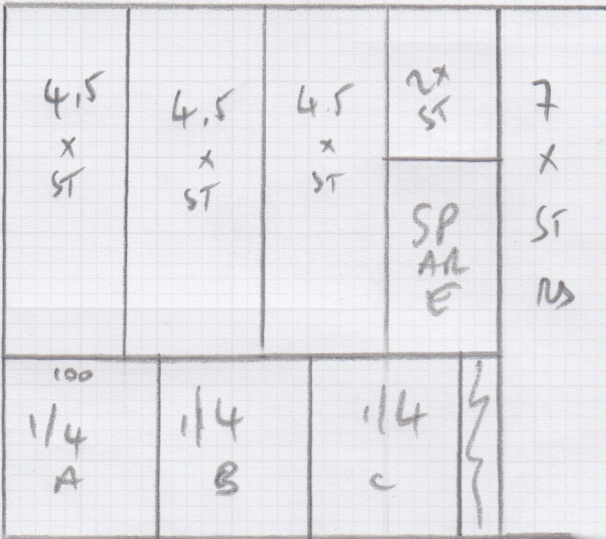 4,5
x
ST
4,5
x
ST
4.5
x
ST
2x
ST
SP
AR
E
7
x
ST
100
1/4
A
1/4
B
1/4
C